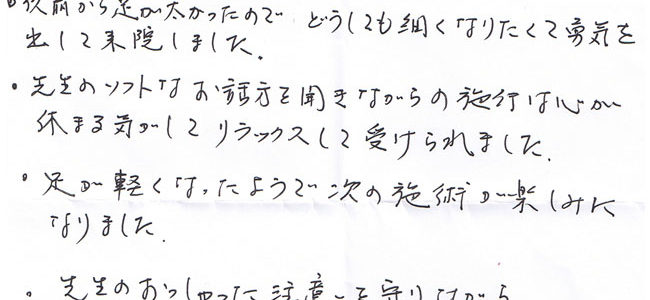 ・以前から足が太かったので どうしても細くなりたくて勇気を
出して来院しました。
・先生のソフトなお話方を聞きながらの施行は心が
休まる気がしてリラックスして受けられました。
・足が軽くなったようで次の施術が楽しみに
なりました。
・先生のおっしゃった注意を守りながら